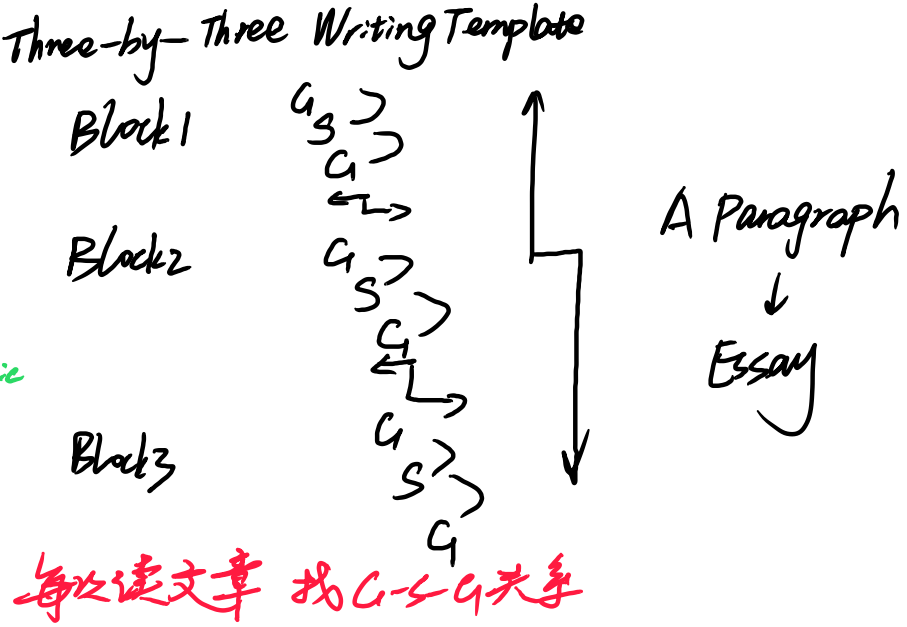 Three-by-Three Writing Template
Block1
G
S
G
Block2
G
S
G
Block3
G
S
G
A Paragraph
Essay
每次读文章 找G-S-G关系